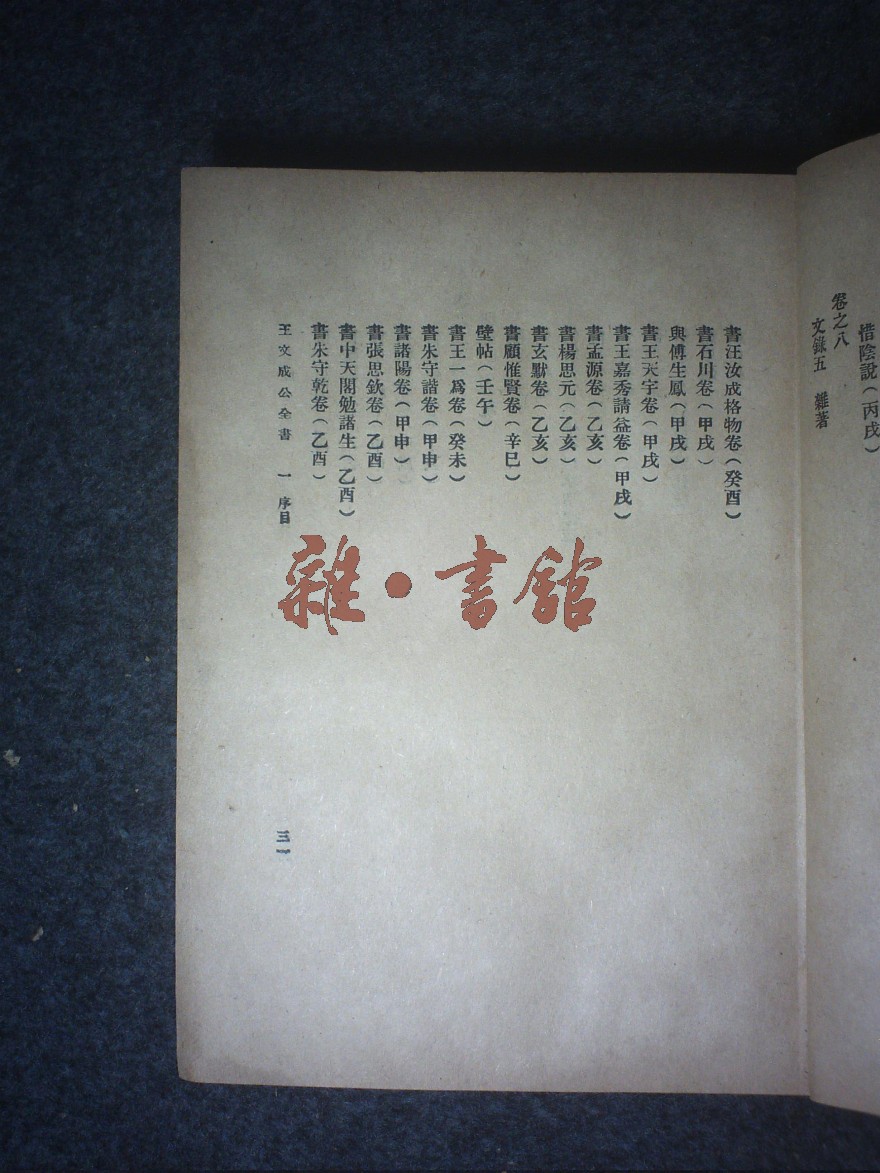 惜陰說（丙戌）
卷之八
文錄五　雜著
書汪汝成格物卷（癸酉）
書石川卷（甲戌）
與傅生鳳（甲戌）
書王天宇卷（甲戌）
書王嘉秀請益卷（甲戌）
書孟源卷（乙亥）
書楊思元（乙亥）
書玄默卷（乙亥）
書顧惟賢卷（辛巳）
壁帖（壬午）
書王一爲卷（癸未）
書朱守諧卷（甲申）
書諸陽卷（甲申）
書張思欽卷（乙酉）
書中天閣勉諸生（乙酉）
書朱守乾卷（乙酉）
王文成公全書　一　序目
三一
雜·書館